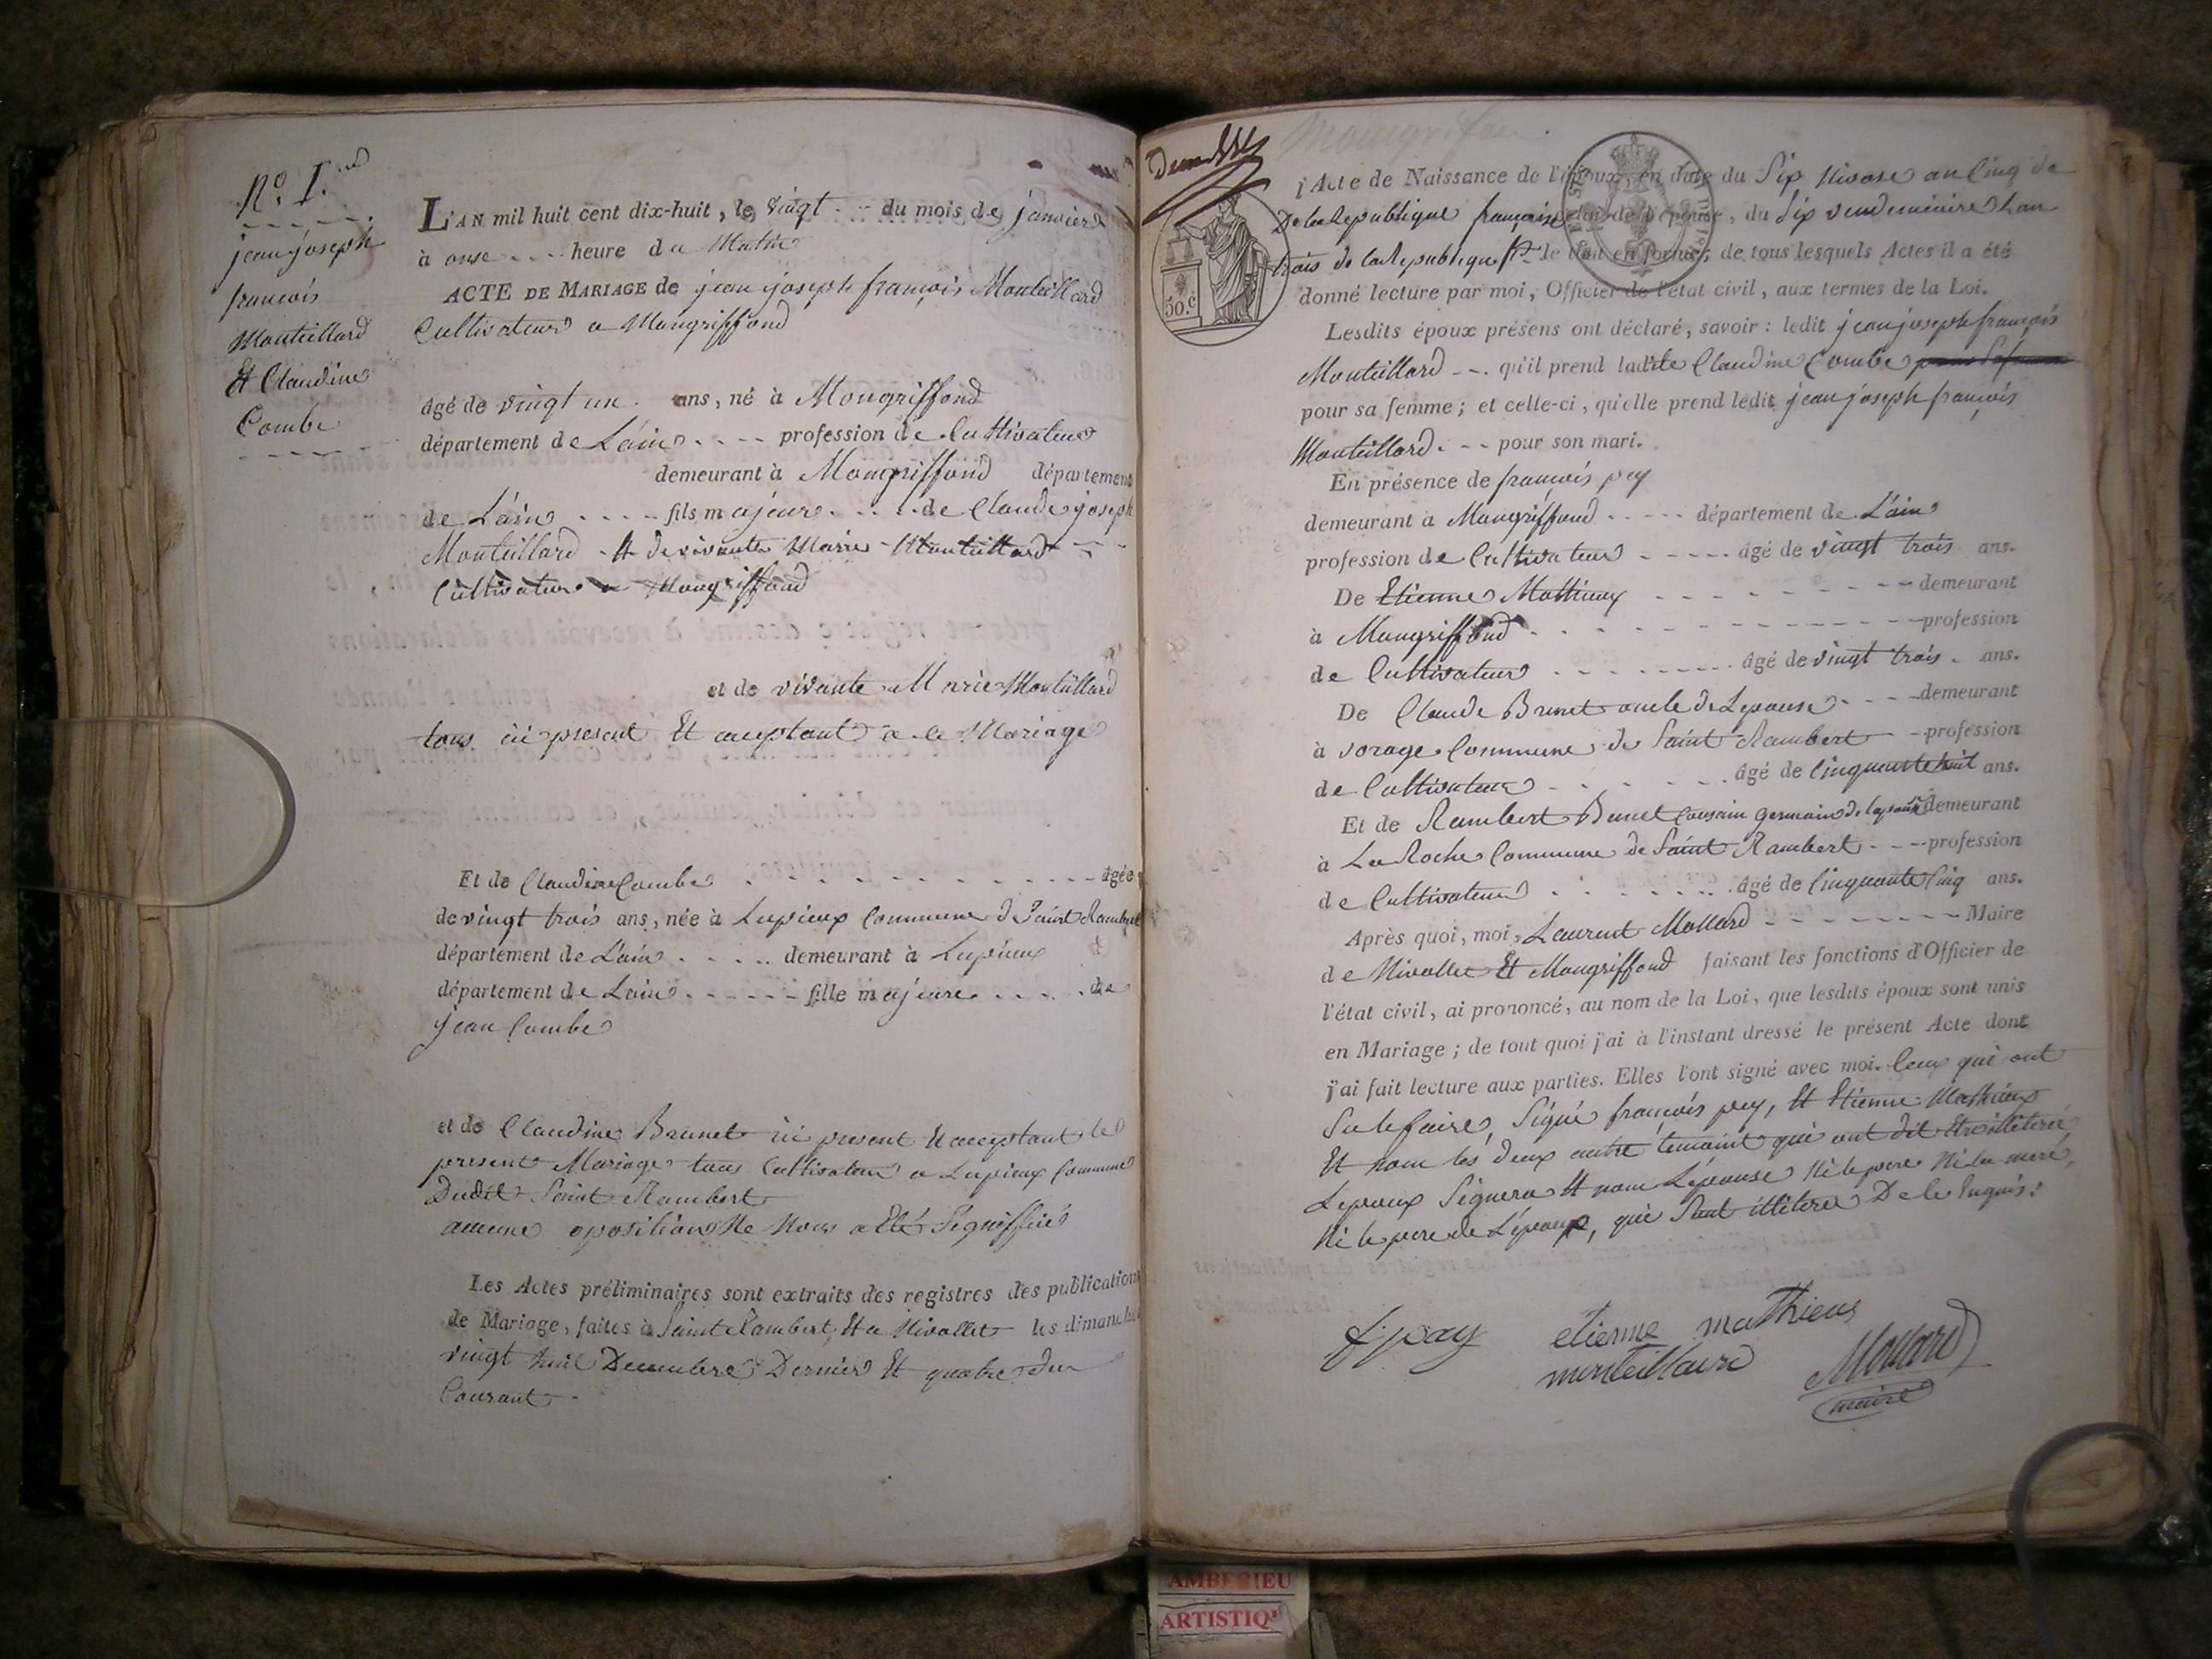 N.º 1.er
jean joseph
francois
Monteillard
Et Claudine
Combe
L'AN mil huit cent dix-huit, le vingt du mois de janvier
à onse heure du Matin
ACTE DE MARIAGE de jean joseph françois Monteillard
Cultivateur a Mongriffond
âgé de vingt un ans, né à Mongriffond
département de L'ain profession de Cultivateur
demeurant à Mongriffond département
de L'ain fils majeur de Claude joseph
Monteillard Et de vivante Marie Monteillard
Cultivateur a Mongriffond
et de vivante Marie Monteillard
tous ici present Et aceptant a ce Mariage
Et de Claudine Combe âgée
de vingt trois ans, née à Lupieux Commune de Saint Rambert
département de L'ain demeurant à Lupieux
département de Lain fille majeure de
jean Combe
et de Claudine Brunet ici present Et aceptant le
present Mariage tous Cultivateur a Lupieux Commune
Dudit Saint Rambert
aucune oposition Ne Nous a Eté Signiffiés
Les Actes préliminaires sont extraits des registres des publications
de Mariage, faites à Saint Rambert Et a Nivollet les dimanches
vingt huit Decembre Dernier Et quatre du
Courant
50.c
j Acte de Naissance de l'époux, en date du Six Nivose an Cinq de
De la Republique française celui de l'épouse, du Six vendemiaire Lan
trois de la Republique le tout en forme; de tous lesquels Actes il a été
donné lecture par moi, Officier de l'état civil, aux termes de la Loi.
Lesdits époux présens ont déclaré, savoir: ledit jean joseph françois
Monteillard qu'il prend ladite Claudine Combe
pour sa femme; et celle-ci, qu'elle prend ledit jean joseph françois
Monteillard pour son mari.
En présence de françois pey
demeurant à Mongriffond département de L'ain
profession de Cultivateur âgé de vingt trois ans.
De Etienne Mathieux demeurant
à Mongriffond profession
de Cultivateur âgé de vingt trois ans.
De Claude Brunet oncle de Lepouse demeurant
à vorage Commune de Saint Rambert profession
de Cultivateur âgé de Cinquante huit ans.
Et de Rambert Brunet Cousain germain de lepouse demeurant
à La Roche Commune de Saint Rambert profession
de Cultivateur âgé de Cinquante Cinq ans.
Après quoi, moi, Laurent Mollard Maire
de Nivollet Et Mongriffond faisant les fonctions d'Officier de
l'état civil, ai prononcé, au nom de la Loi, que lesdits époux sont unis
en Mariage; de tout quoi j'ai à l'instant dressé le présent Acte dont
j'ai fait lecture aux parties. Elles l'ont signé avec moi. Ceux qui ont
Su le faire, Signé françois pey, Et Etienne Mathieux
Et nom les deux autre temoint qui ont dit Etre illiteré
Lepoux Signera Et nom L'épouse Ni le pere Ni la mere,
Ni le pere de L'époux, qui Sont illiteré De le Enquis:
f. pay etienne mathieus
monteillard Mollard
maire
AMBERIEU
ARTISTIQ